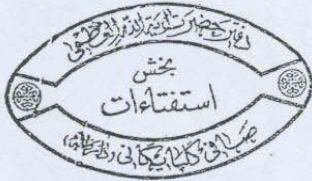 دفتر حضرت آیة الله العظمی
بخش
استفتاءات
صافی گلپایگانی